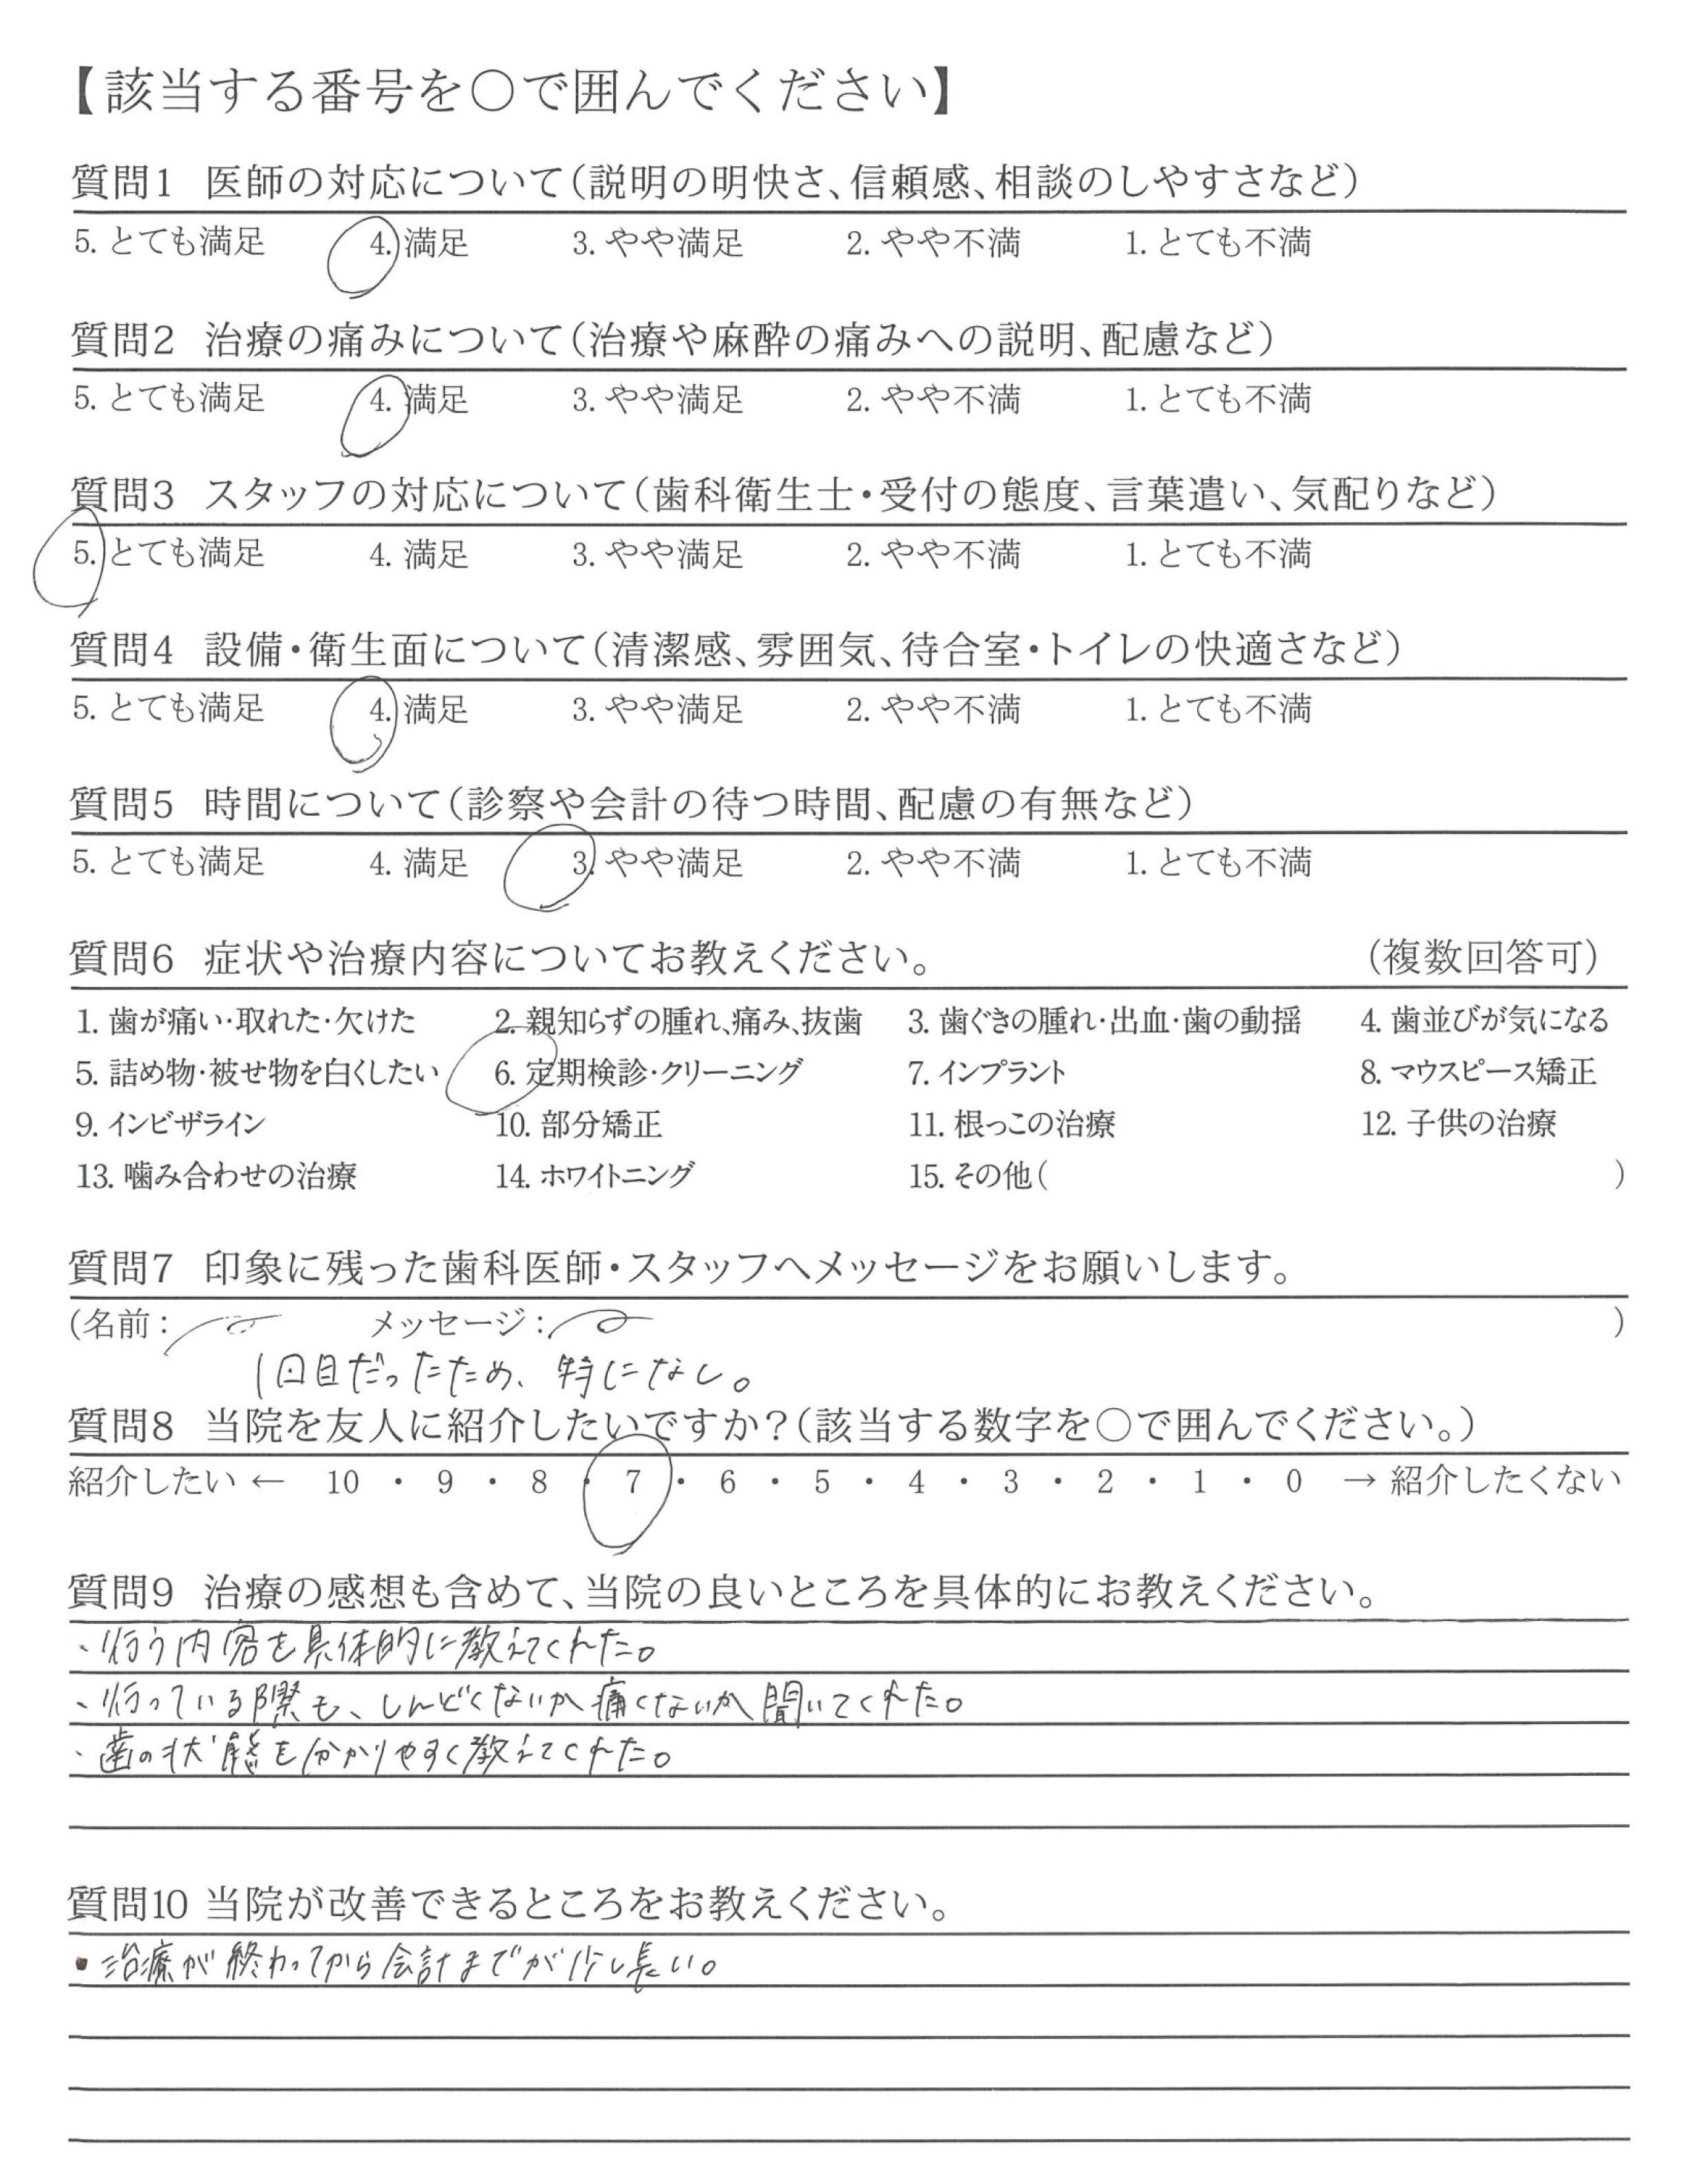 【該当する番号を○で囲んでください】
質問1 医師の対応について(説明の明快さ、信頼感、相談のしやすさなど)
5. とても満足 4. 満足 3. やや満足 2. やや不満 1. とても不満
質問2 治療の痛みについて(治療や麻酔の痛みへの説明、配慮など)
5. とても満足 4. 満足 3. やや満足 2. やや不満 1. とても不満
質問3 スタッフの対応について(歯科衛生士・受付の態度、言葉遣い、気配りなど)
5. とても満足 4. 満足 3. やや満足 2. やや不満 1. とても不満
質問4 設備・衛生面について(清潔感、雰囲気、待合室・トイレの快適さなど)
5. とても満足 4. 満足 3. やや満足 2. やや不満 1. とても不満
質問5 時間について(診察や会計の待つ時間、配慮の有無など)
5. とても満足 4. 満足 3. やや満足 2. やや不満 1. とても不満
質問6 症状や治療内容についてお教えください。 (複数回答可)
1. 歯が痛い・取れた・欠けた 2. 親知らずの腫れ、痛み、抜歯 3. 歯ぐきの腫れ・出血・歯の動揺 4. 歯並びが気になる
5. 詰め物・被せ物を白くしたい 6. 定期検診・クリーニング 7. インプラント 8. マウスピース矯正
9. インビザライン 10. 部分矯正 11. 根っこの治療 12. 子供の治療
13. 噛み合わせの治療 14. ホワイトニング 15. その他( )
質問7 印象に残った歯科医師・スタッフへメッセージをお願いします。
(名前: メッセージ: )
1回目だったため、特になし。
質問8 当院を友人に紹介したいですか?(該当する数字を○で囲んでください。)
紹介したい ← 10 ・ 9 ・ 8 ・ 7 ・ 6 ・ 5 ・ 4 ・ 3 ・ 2 ・ 1 ・ 0 → 紹介したくない
質問9 治療の感想も含めて、当院の良いところを具体的にお教えください。
・行う内容を具体的に教えてくれた。
・行っている際も、しんどくないか痛くないか聞いてくれた。
・歯の状態を分かりやすく教えてくれた。
質問10 当院が改善できるところをお教えください。
・治療が終わってから会計までが少し長い。